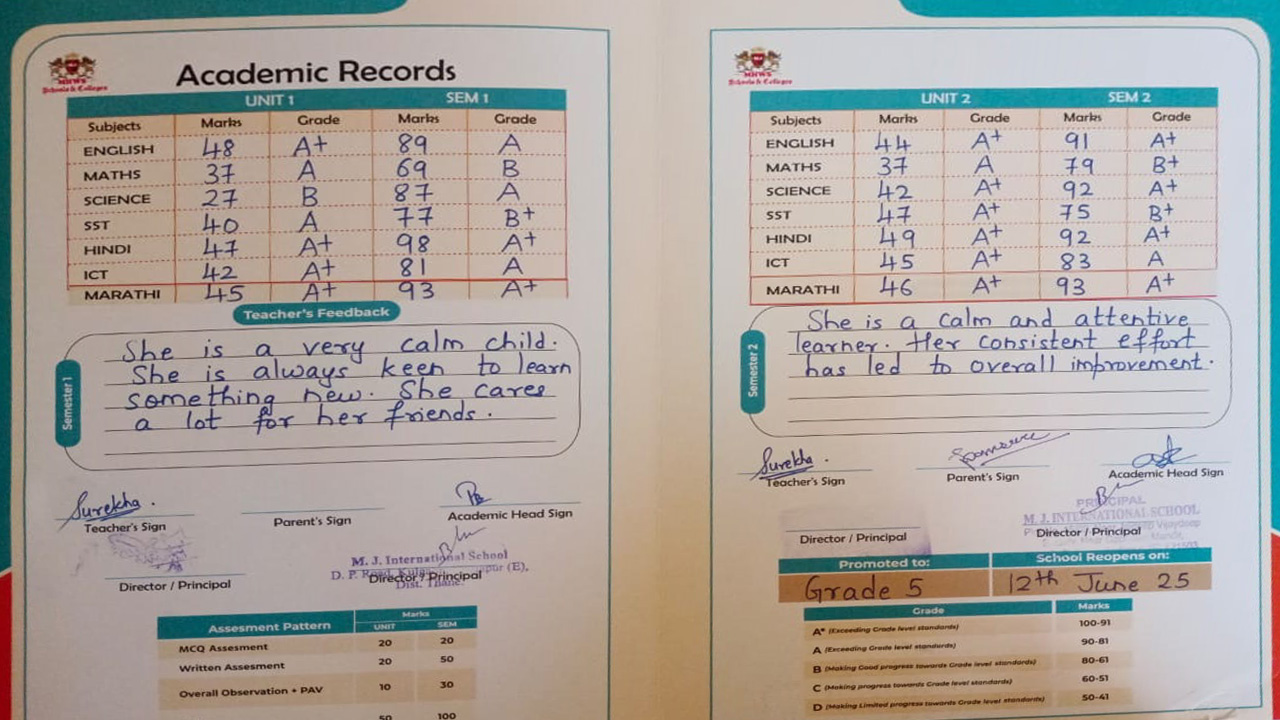 MHWS
Schools & Colleges
Academic Records
UNIT 1 SEM 1
Subjects Marks Grade Marks Grade
ENGLISH 48 A+ 89 A
MATHS 37 A 69 B
SCIENCE 27 B 87 A
SST 40 A 77 B+
HINDI 47 A+ 98 A+
ICT 42 A+ 81 A
MARATHI 45 A+ 93 A+
Teacher's Feedback
Semester 1
She is a very calm child.
She is always keen to learn
something new. She cares
a lot for her friends.
Surekha.
Teacher's Sign Parent's Sign Academic Head Sign
M. J. International School
D. P. Road, (E),
Dist. Thane.
Director / Principal Director / Principal
Assesment Pattern Marks
UNIT SEM
MCQ Assesment 20 20
Written Assesment 20 50
Overall Observation + PAV 10 30
50 100
MHWS
Schools & Colleges
UNIT 2 SEM 2
Subjects Marks Grade Marks Grade
ENGLISH 44 A+ 91 A+
MATHS 37 A 79 B+
SCIENCE 42 A+ 92 A+
SST 47 A+ 75 B+
HINDI 49 A+ 92 A+
ICT 45 A+ 83 A
MARATHI 46 A+ 93 A+
Semester 2
She is a calm and attentive
learner. Her consistent effort
has led to overall improvement.
Surekha.
Teacher's Sign Parent's Sign Academic Head Sign
PRINCIPAL
M. J. INTERNATIONAL SCHOOL
Director / Principal Director / Principal
Promoted to: School Reopens on:
Grade 5 12th June 25
Grade Marks
A+ (Exceeding Grade level standards) 100-91
A (Exceeding Grade level standards) 90-81
B (Making Good progress towards Grade level standards) 80-61
C (Making progress towards Grade level standards) 60-51
D (Making Limited progress towards Grade level standards) 50-41